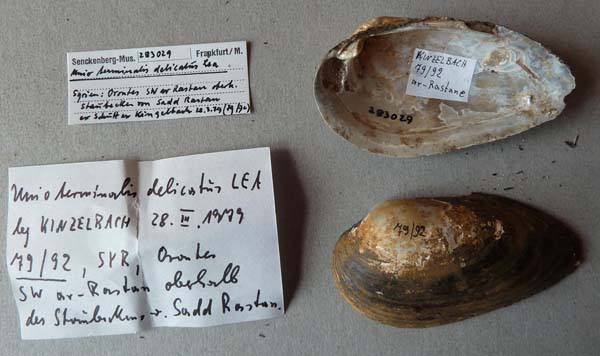 Senckenberg-Mus. 283029 Frankfurt/M.
Unio terminalis delicatus Lea.
Syrien: Orontes SW ar Rastan oberh.
Staubecken von Sadd Rastan
Kinzelbach 28.3.79 (79/92)
Unio terminalis delicatus LEA
leg KINZELBACH 28. III. 1979
79/92, SYR, Orontes
SW ar-Rastan oberhalb
des Staubeckens v. Sadd Rastan.
KINZELBACH
79/92
ar-Rastane
283029
79/92